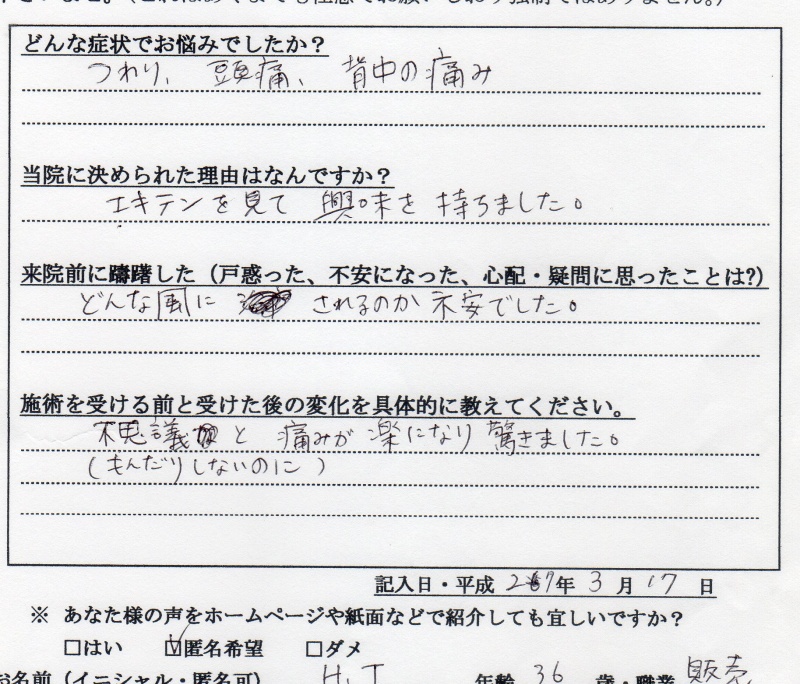 どんな症状でお悩みでしたか？
つわり、頭痛、背中の痛み
当院に決められた理由はなんですか？
エキテンを見て 興味を持ちました。
来院前に躊躇した（戸惑った、不安になった、心配・疑問に思ったことは?）
どんな風に されるのか不安でした。
施術を受ける前と受けた後の変化を具体的に教えてください。
不思議と 痛みが楽になり驚きました。
（もんだりしないのに）
記入日・平成 年 3 月 17 日
※ あなた様の声をホームページや紙面などで紹介しても宜しいですか？
□はい ☑匿名希望 □ダメ
お名前（イニシャル・匿名可） H.T 年齢 36 歳・職業 販売